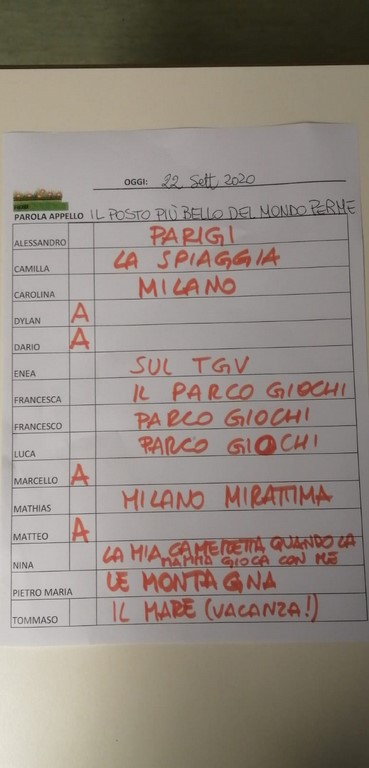 OGGI: 22 Sett 2020
PAROLA APPELLO IL POSTO PIÙ BELLO DEL MONDO PER ME
ALESSANDRO PARIGI
CAMILLA LA SPIAGGIA
CAROLINA MILANO
DYLAN A
DARIO A
ENEA SUL TGV
FRANCESCA IL PARCO GIOCHI
FRANCESCO PARCO GIOCHI
LUCA PARCO GIOCHI
MARCELLO A
MATHIAS MILANO MIRATTIMA
MATTEO A
NINA LA MIA CAMERETTA QUANDO LA
MAMMA GIOCA CON ME
PIETRO MARIA LE MONTAGNA
TOMMASO IL MARE (VACANZA!)